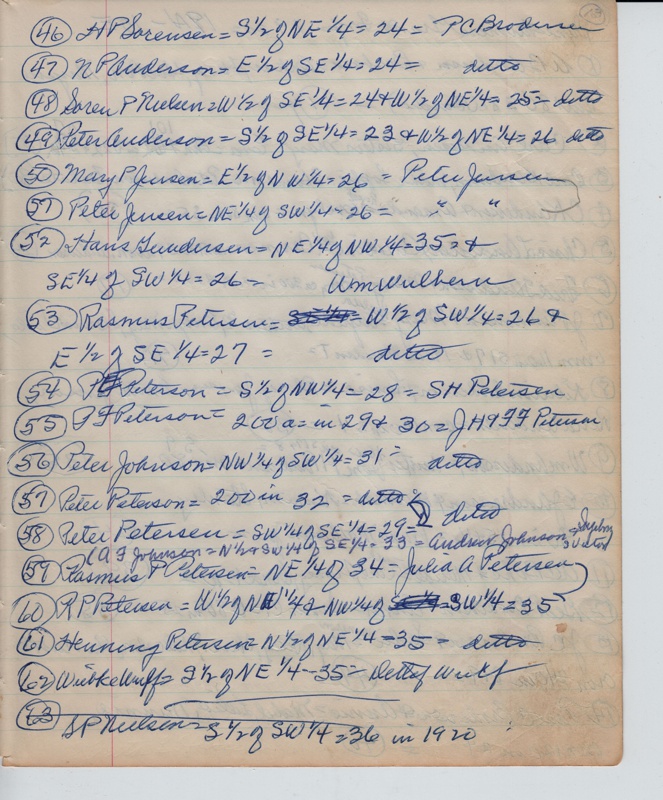 46 H P Sorensen = S 1/2 of NE 1/4 = 24 = P C Brodersen
47 N P Anderson = E 1/2 of SE 1/4 = 24 = ditto
48 Soren P Nielsen = W 1/2 of SE 1/4 = 24 & W 1/2 of NE 1/4 = 25 = ditto
49 Peter Anderson = S 1/2 of SE 1/4 = 23 & W 1/2 of NE 1/4 = 26 ditto
50 Mary P Jensen = E 1/2 of NW 1/4 = 26 = Peter Jensen
51 Peter Jensen = NE 1/4 of SW 1/4 = 26 = " "
52 Hans Gundersen = NE 1/4 of NW 1/4 = 35 = &
SE 1/4 of SW 1/4 = 26 = Wm Wulbern
53 Rasmus Petersen = W 1/2 of SW 1/4 = 26 &
E 1/2 of SE 1/4 = 27 = ditto
54 Peterson = S 1/2 of NW 1/4 = 28 = S H Petersen
55 Peterson = 200 a = in 29 & 30 = J H
56 Peter Johnson = NW 1/4 of SW 1/4 = 31 = ditto
57 Peter Peterson = 200 in 32 = ditto
58 Peter Petersen = SW 1/4 of SE 1/4 = 29 = ditto
Johnson = N 1/2 & SW 1/4 of SE 1/4 = 33 = Andrew Johnson
59 Rasmus P Petersen = NE 1/4 of 34 = Julia A Petersen
60 R P Petersen = W 1/2 of NW 1/4 & NW 1/4 of SW 1/4 = 35
61 Henning Petersen = N 1/2 of NE 1/4 = 35 = ditto
62 Wiebke Wulff = S 1/2 of NE 1/4 = 35 = Detlef Wulf
63
S P Nielsen = S 1/2 of SW 1/4 = 36 in 1920